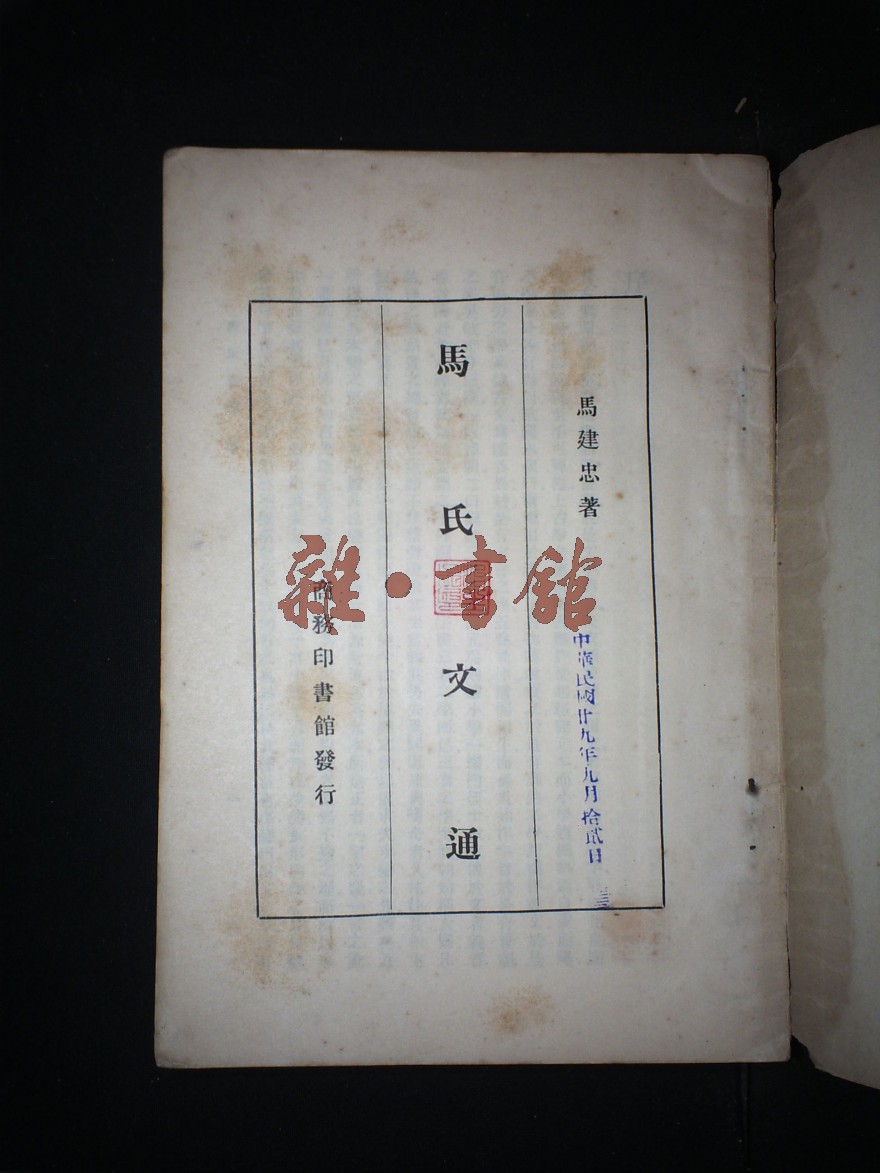 馬建忠著
中華民國廿九年九月拾貳日
馬氏文通
商務印書館發行
雜·書館